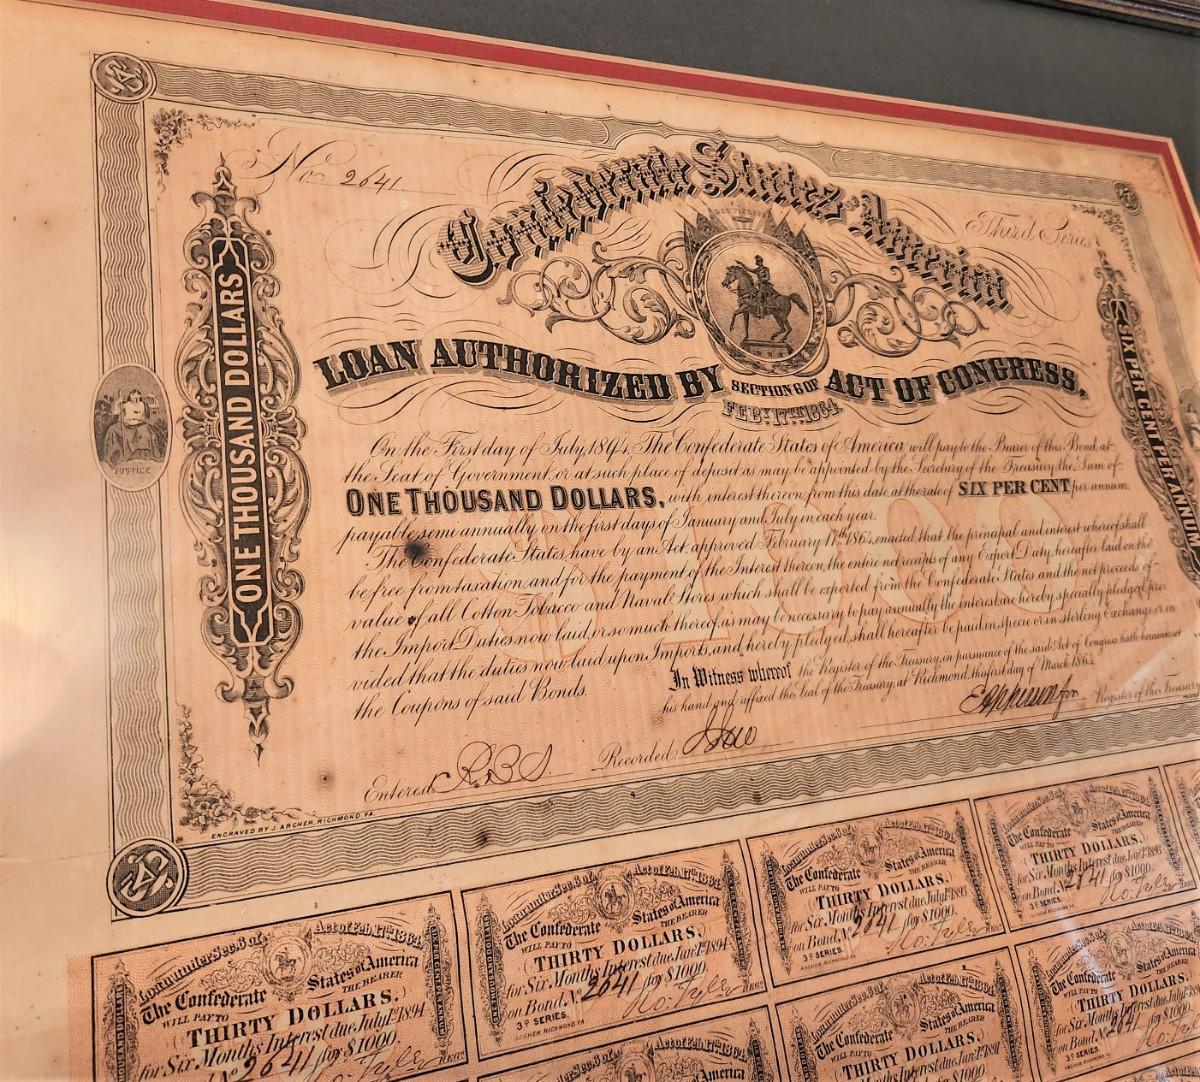 No. 2641
Confederate States America
Third Series
ONE THOUSAND DOLLARS
SIX PER CENT PER ANNUM
JUSTICE
LOAN AUTHORIZED BY SECTION 6 OF ACT OF CONGRESS,
FEBY. 17TH. 1864.
On the First day of July, 1894, The Confederate States of America will pay to the Bearer of this Bond at
the Seat of Government or at such place of deposit as may be appointed by the Secretary of the Treasury the Sum of
ONE THOUSAND DOLLARS, with interest thereon from this date at the rate of SIX PER CENT per annum
payable semi annually on the first days of January and July in each year.
The Confederate States have by an Act approved February 17th 1864, enacted that the principal and interest whereof shall
be free from taxation, and for the payment of the Interest thereon, the entire net receipts of any Export Duty, hereafter laid on the
value of all Cotton, Tobacco and Naval Stores which shall be exported from the Confederate States and the net proceeds of
the Import Duties now laid, or so much thereof as may be necessary to pay annually the interest are hereby specially pledged, pro
vided that the duties now laid upon Imports, and hereby pledged, shall hereafter be paid in specie or in sterling Exchange, or in
the Coupons of said Bonds.
$1000
In Witness whereof the Register of the Treasury, in pursuance of the said Act of Congress hath hereunto set
his hand and affixed the Seal of the Treasury, at Richmond, this first day of March 186
Register of the Treasury
Entered R.B.S. Recorded
ENGRAVED BY J. ARCHER, RICHMOND, VA.
Loan under Sec. 6 of Act of Feb. 17th 1864
The Confederate States of America
WILL PAY TO THE BEARER
THIRTY DOLLARS.
for Six Months Interest due July 1st 1894
No 2641 for $1000.
Ro. Tyler
Loan under Sec. 6 of Act of Feb. 17th 1864
The Confederate States of America
WILL PAY TO THE BEARER
THIRTY DOLLARS.
for Six Months Interest due Jany 1st 1894
on Bond No 2641 for $1000.
3D SERIES. Ro. Tyler REGR.
ARCHER RICHMOND, VA
Loan under Sec. 6 of Act of Feb. 17th 1864
The Confederate States of America
WILL PAY TO THE BEARER
THIRTY DOLLARS.
for Six Months Interest due July 1st 1893
on Bond No 2641 for $1000.
3D SERIES. Ro. Tyler
ARCHER RICHMOND, VA
The Confederate States of America
WILL PAY TO THE BEARER
THIRTY DOLLARS.
for Six Months Interest due Jany 1st 1893
on Bond No 2641 for $1000.
3D SERIES. Ro. Tyler
Act of Feb. 17th 1864
The Confederate States of America
WILL PAY TO THE BEARER
THIRTY DOLLARS.
for Six Months Interest due Jany 1st 1891
The Confederate States of America
WILL PAY TO
THIRTY DOLLARS.
for Six Months Interest due
on Bond No 2641 for $1000.
3D SERIES. Ro. Tyler
Act of Feb. 17th 1864
The Confederate States of America